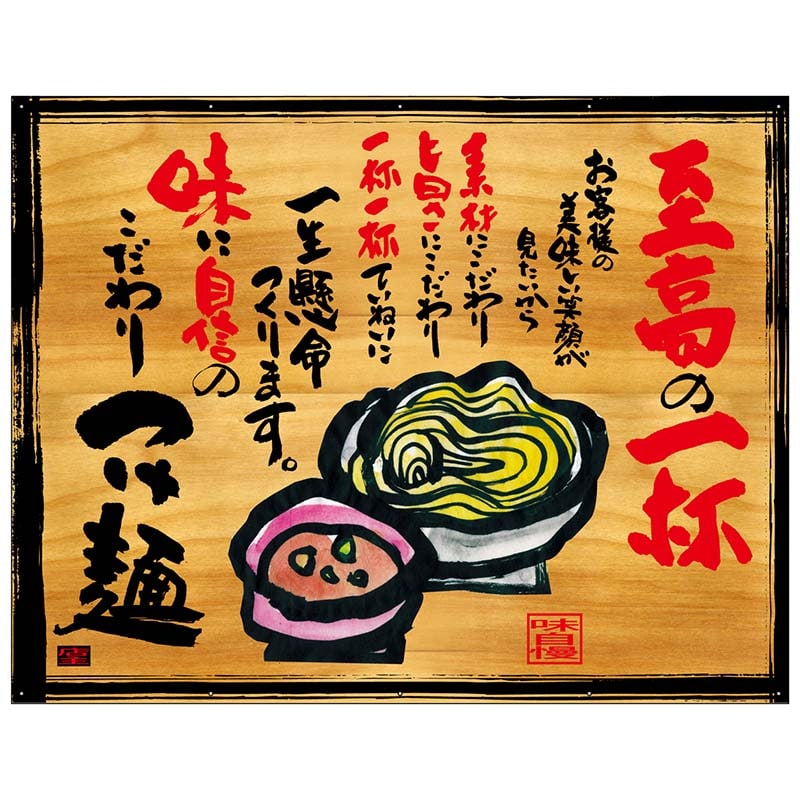 至高の一杯
お客様の
美味しい笑顔が
見たいから
素材にこだわり
旨さにこだわり
一杯一杯ていねいに
一生懸命
つくります。
味に自信の
こだわり
つけ麺
味自慢
店主